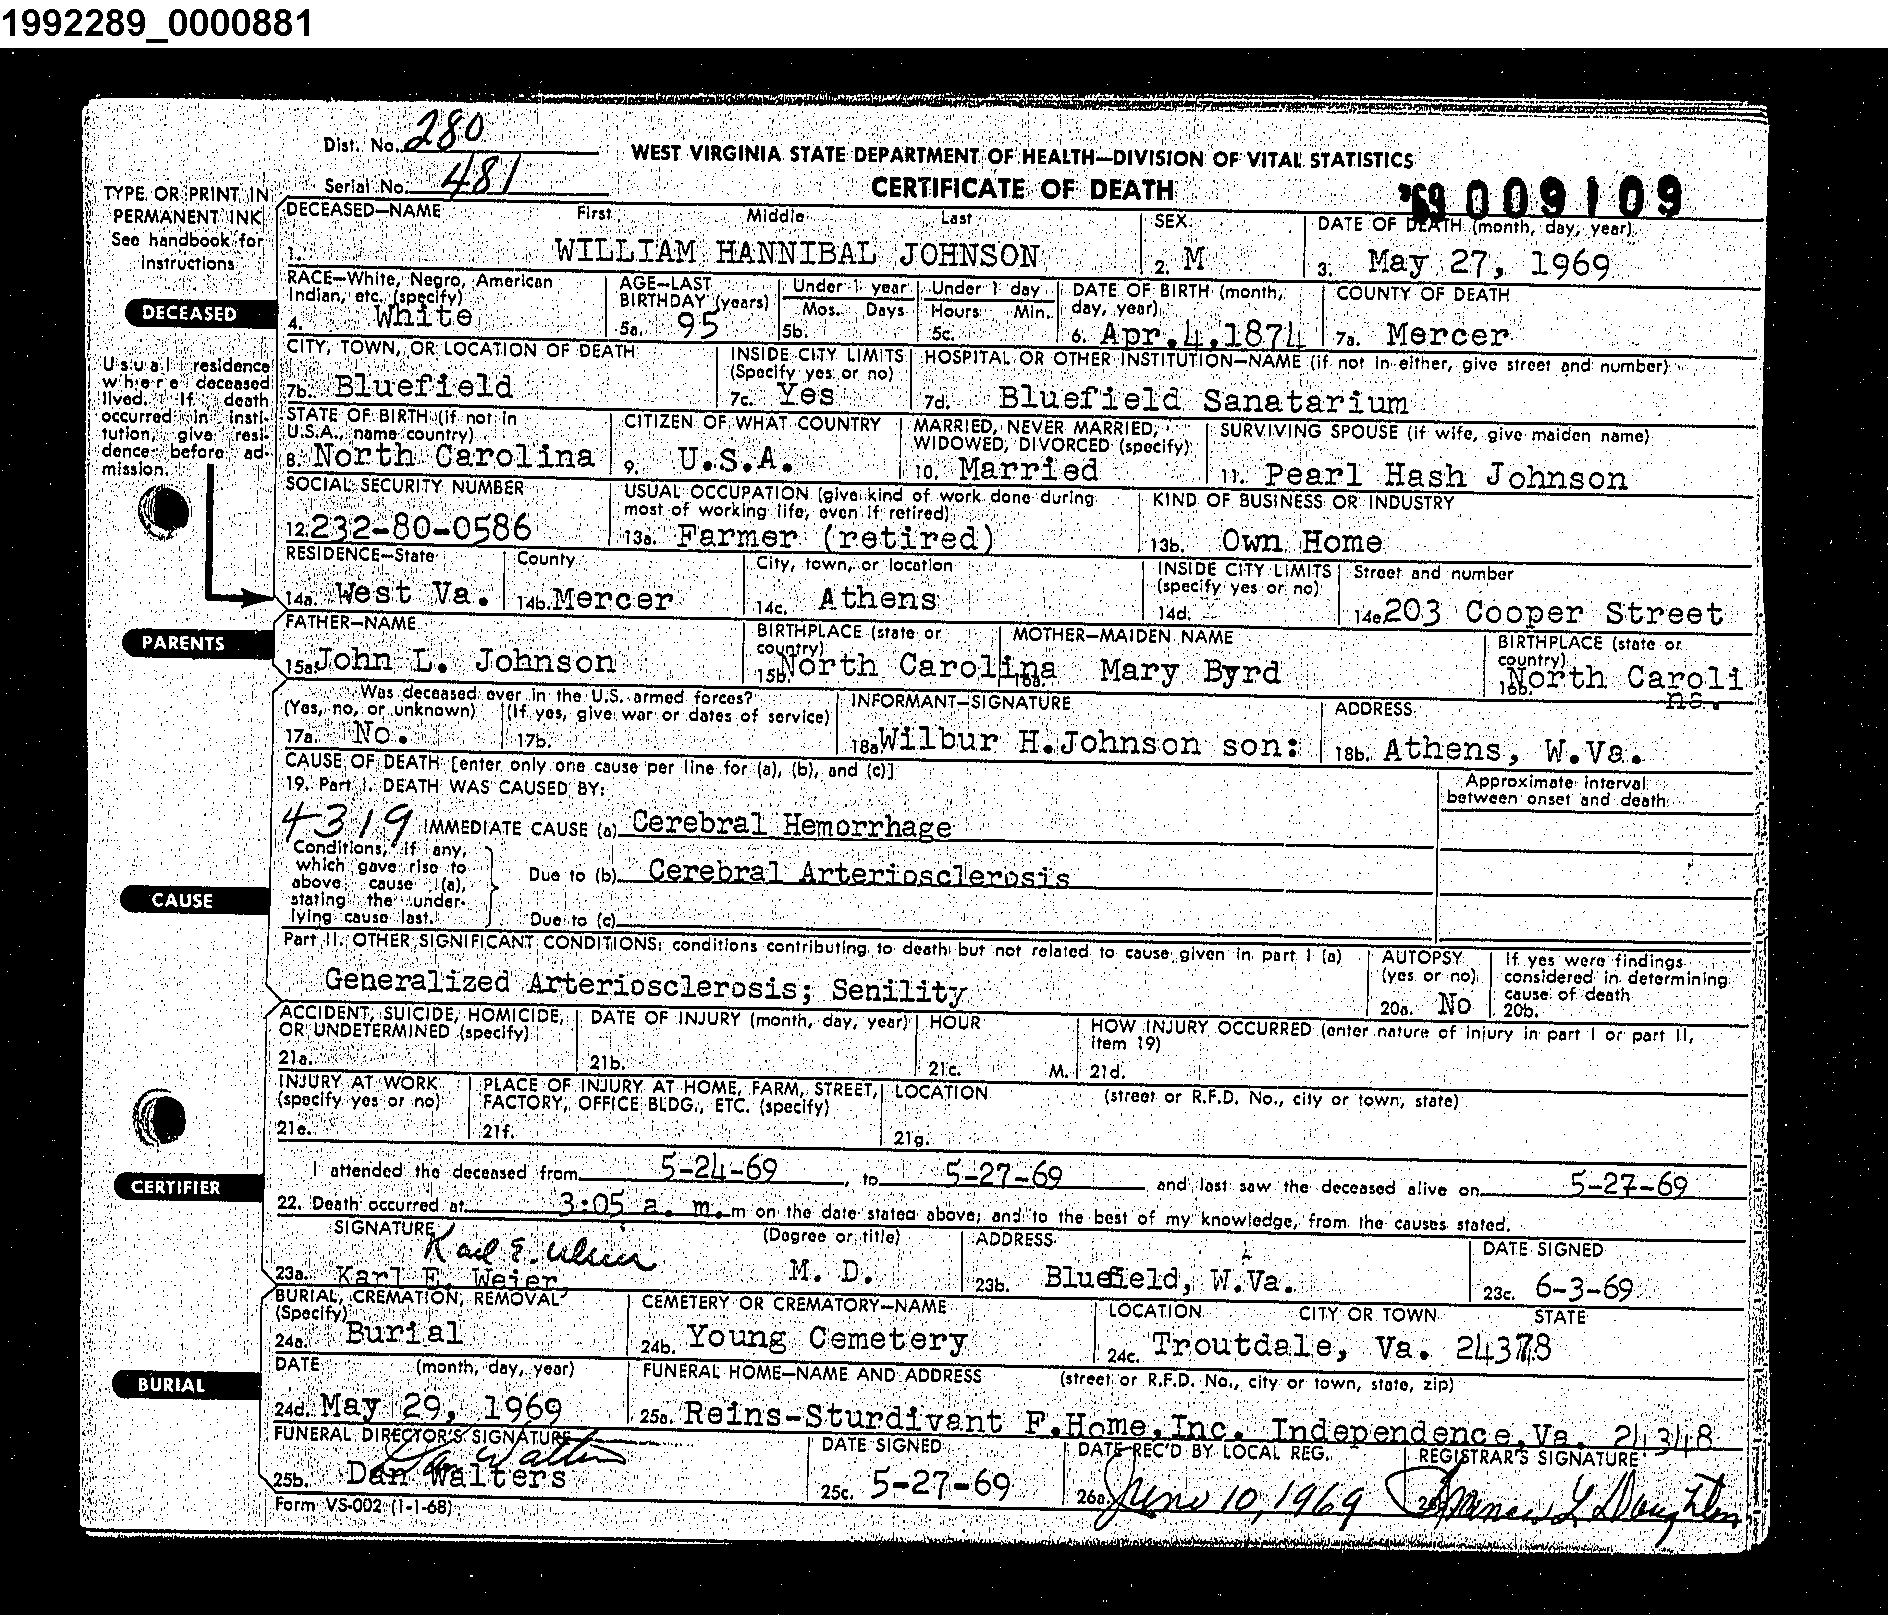 1992289_0000881
Dist. No. 280
Serial No. 481
WEST VIRGINIA STATE DEPARTMENT OF HEALTH—DIVISION OF VITAL STATISTICS
CERTIFICATE OF DEATH
'69 009109
TYPE OR PRINT IN
PERMANENT INK
See handbook for
instructions
DECEASED—NAME First Middle Last
1. WILLIAM HANNIBAL JOHNSON
SEX
2. M
DATE OF DEATH (month, day, year)
3. May 27, 1969
DECEASED
RACE—White, Negro, American
Indian, etc. (specify)
4. White
AGE—LAST
BIRTHDAY (years)
5a. 95
Under 1 year
Mos. Days
5b.
Under 1 day
Hours Min.
5c.
DATE OF BIRTH (month,
day, year)
6. Apr.4,1874
COUNTY OF DEATH
7a. Mercer
Usual residence
where deceased
lived. If death
occurred in insti-
tution, give resi-
dence before ad-
mission.
CITY, TOWN, OR LOCATION OF DEATH
7b. Bluefield
INSIDE CITY LIMITS
(Specify yes or no)
7c. Yes
HOSPITAL OR OTHER INSTITUTION—NAME (if not in either, give street and number)
7d. Bluefield Sanatarium
STATE OF BIRTH (if not in
U.S.A., name country)
8. North Carolina
CITIZEN OF WHAT COUNTRY
9. U.S.A.
MARRIED, NEVER MARRIED,
WIDOWED, DIVORCED (specify)
10. Married
SURVIVING SPOUSE (if wife, give maiden name)
11. Pearl Hash Johnson
SOCIAL SECURITY NUMBER
12. 232-80-0586
USUAL OCCUPATION (give kind of work done during
most of working life, even if retired)
13a. Farmer (retired)
KIND OF BUSINESS OR INDUSTRY
13b. Own Home
RESIDENCE—State
14a. West Va.
County
14b. Mercer
City, town, or location
14c. Athens
INSIDE CITY LIMITS
(specify yes or no)
14d.
Street and number
14e. 203 Cooper Street
PARENTS
FATHER—NAME
15a. John L. Johnson
BIRTHPLACE (state or
country)
15b. North Carolina
MOTHER—MAIDEN NAME
16a. Mary Byrd
BIRTHPLACE (state or
country)
16b. North Caroli
na.
Was deceased ever in the U.S. armed forces?
(Yes, no, or unknown) (If yes, give war or dates of service)
17a. No. 17b.
INFORMANT—SIGNATURE
18a. Wilbur H.Johnson son:
ADDRESS
18b. Athens, W.Va.
CAUSE
CAUSE OF DEATH [enter only one cause per line for (a), (b), and (c)]
19. Part I. DEATH WAS CAUSED BY:
Approximate interval
between onset and death
4319 IMMEDIATE CAUSE (a) Cerebral Hemorrhage
Conditions, if any,
which gave rise to
above cause (a),
stating the under-
lying cause last.
Due to (b) Cerebral Arteriosclerosis
Due to (c)
Part II. OTHER SIGNIFICANT CONDITIONS: conditions contributing to death but not related to cause given in part I (a)
Generalized Arteriosclerosis; Senility
AUTOPSY
(yes or no)
20a. No
If yes were findings
considered in determining
cause of death
20b.
ACCIDENT, SUICIDE, HOMICIDE,
OR UNDETERMINED (specify)
21a.
DATE OF INJURY (month, day, year)
21b.
HOUR
21c. M.
HOW INJURY OCCURRED (enter nature of injury in part I or part II,
item 19)
21d.
INJURY AT WORK
(specify yes or no)
21e.
PLACE OF INJURY AT HOME, FARM, STREET,
FACTORY, OFFICE BLDG., ETC. (specify)
21f.
LOCATION (street or R.F.D. No., city or town, state)
21g.
CERTIFIER
I attended the deceased from 5-24-69, to 5-27-69 and last saw the deceased alive on 5-27-69
22. Death occurred at 3:05 a. m. m on the date stated above; and to the best of my knowledge, from the causes stated.
SIGNATURE Karl E. Weier
23a. Karl E. Weier
(Degree or title)
M. D.
ADDRESS
23b. Bluefield, W.Va.
DATE SIGNED
23c. 6-3-69
BURIAL
BURIAL, CREMATION, REMOVAL
(Specify)
24a. Burial
CEMETERY OR CREMATORY—NAME
24b. Young Cemetery
LOCATION CITY OR TOWN STATE
24c. Troutdale, Va. 24378
DATE (month, day, year)
24d. May 29, 1969
FUNERAL HOME—NAME AND ADDRESS (street or R.F.D. No., city or town, state, zip)
25a. Reins-Sturdivant F.Home,Inc. Independence,Va. 24348
FUNERAL DIRECTOR'S SIGNATURE
Dan Walters
25b. Dan Walters
DATE SIGNED
25c. 5-27-69
DATE REC'D BY LOCAL REG.
26a. June 10, 1969
REGISTRAR'S SIGNATURE
Form VS-002 (1-1-68)